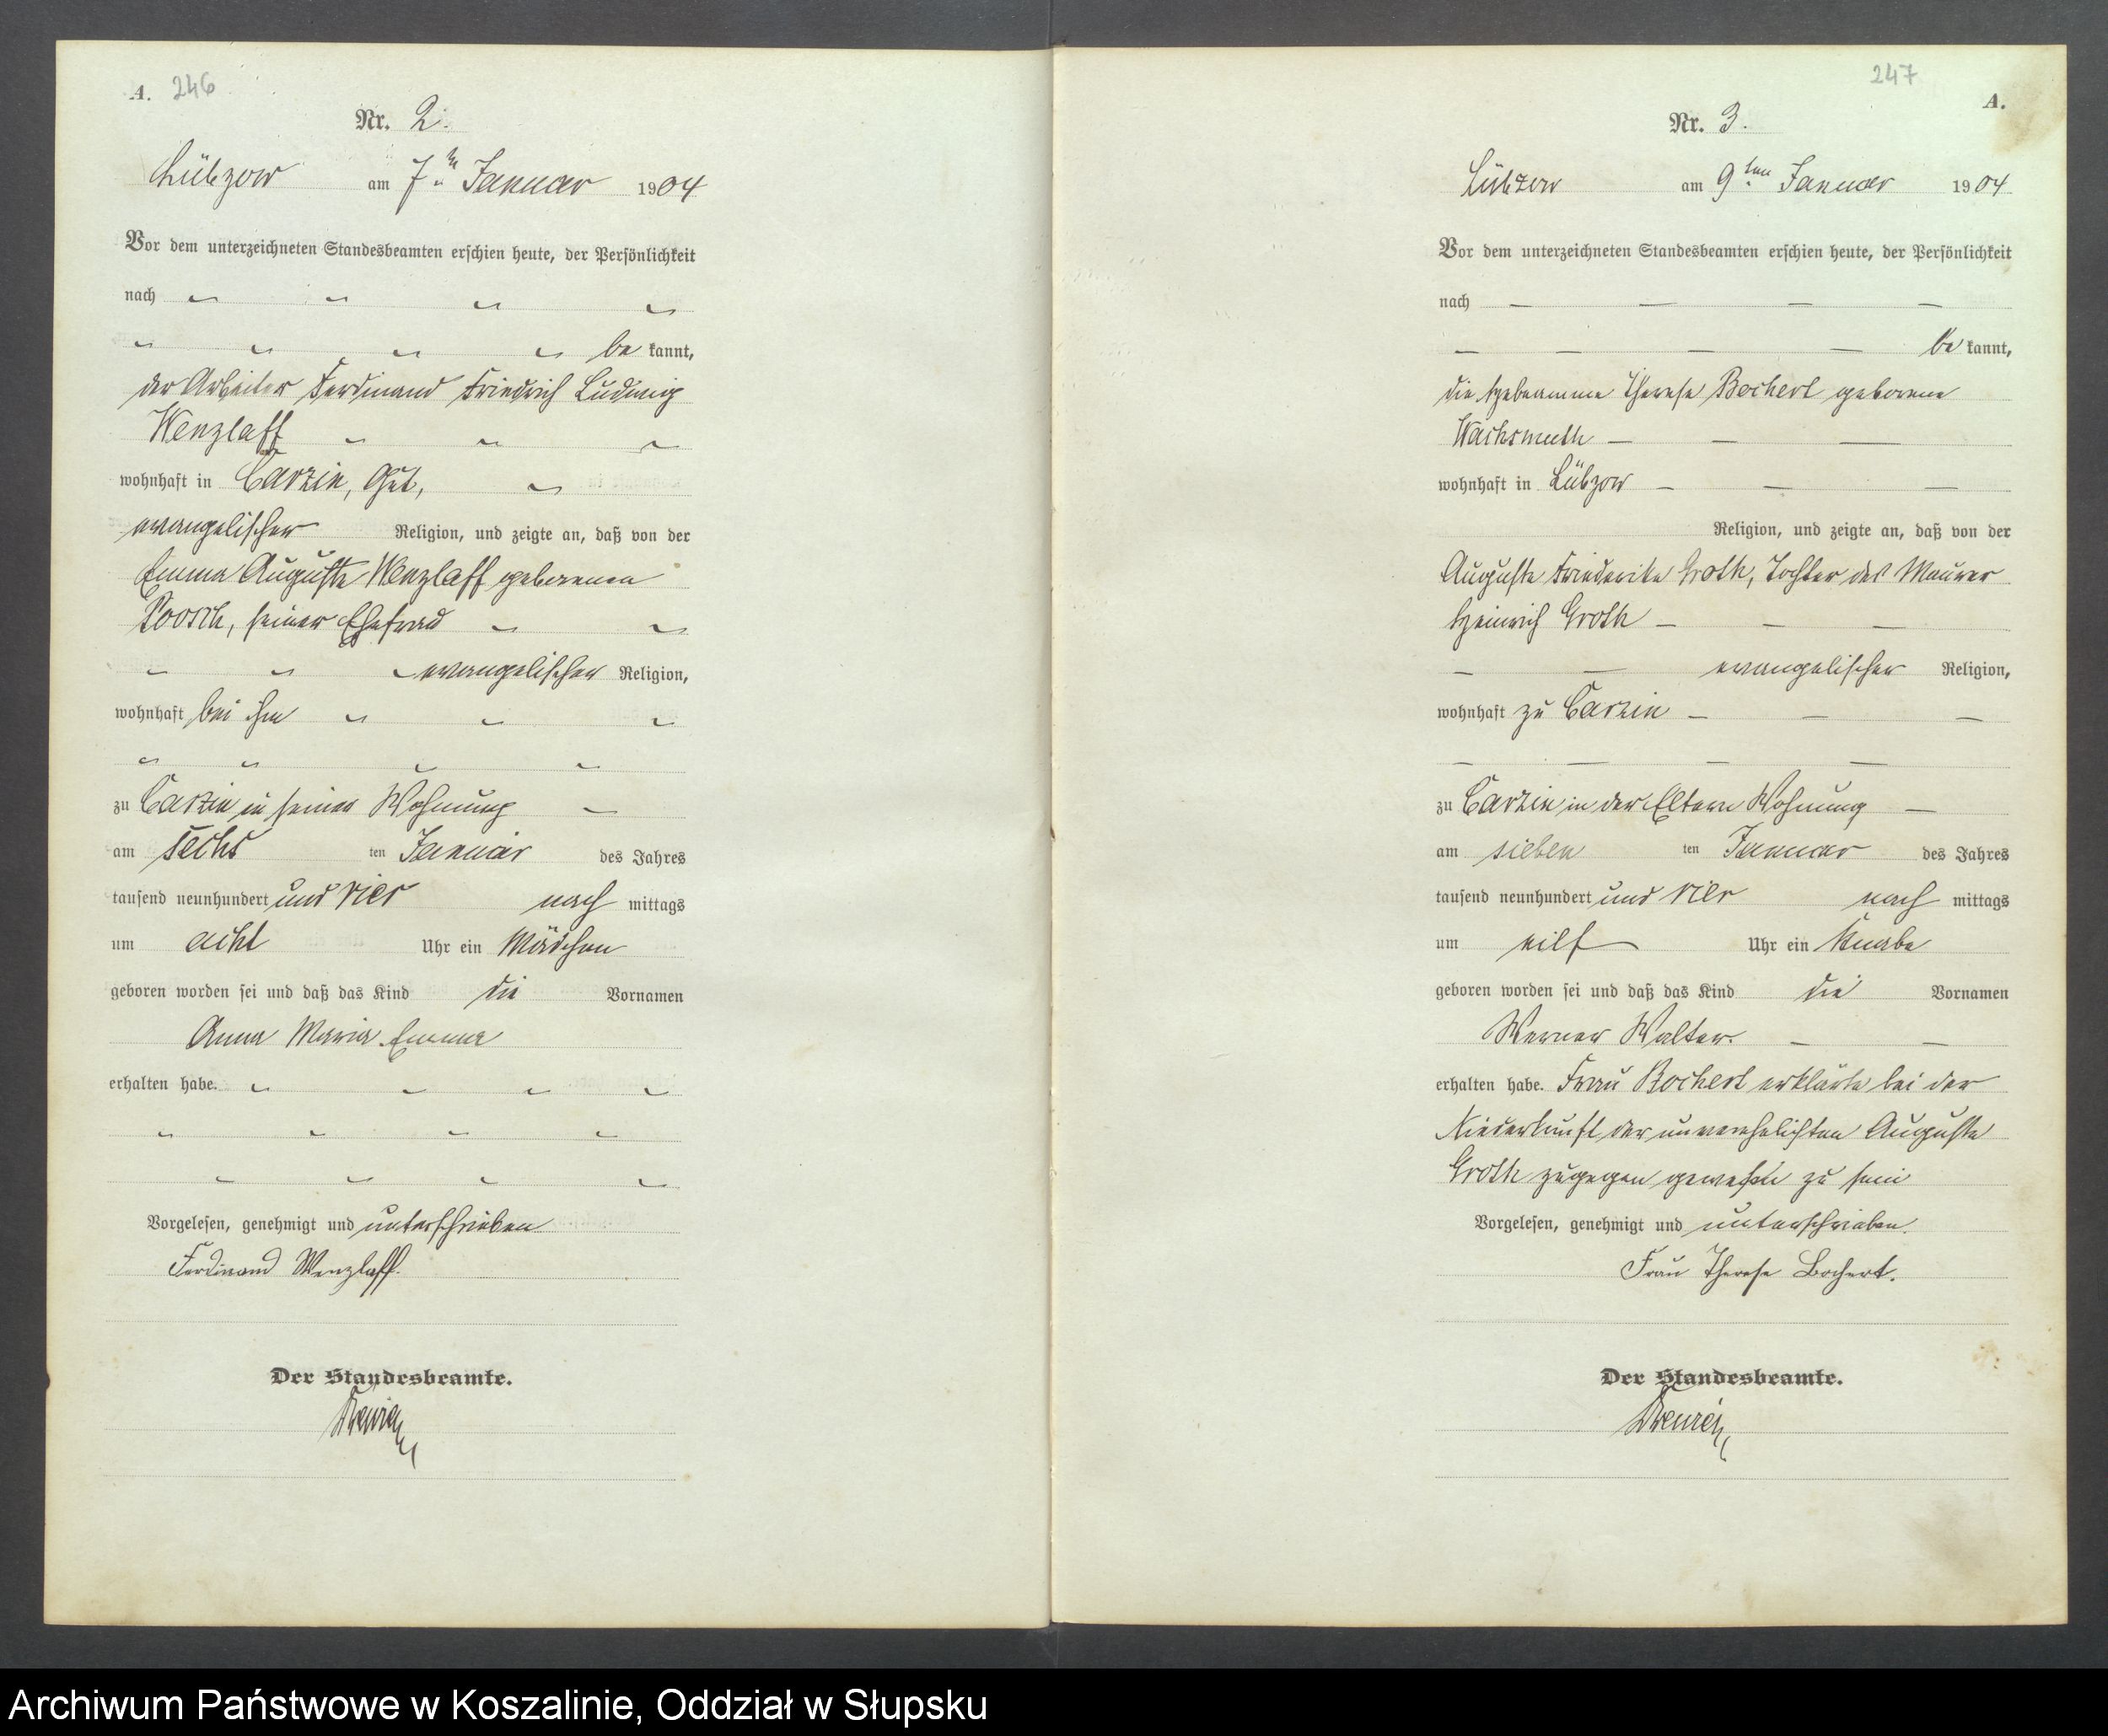 A. 246
Nr. 2.
Lübzow am 7ten Januar 1904
Vor dem unterzeichneten Standesbeamten erschien heute, der Persönlichkeit
nach
be kannt,
der Arbeiter Ferdinand Friedrich Ludwig
Wenzlaff
wohnhaft in Carzin, Gut,
evangelischer Religion, und zeigte an, daß von der
Emma Auguste Wenzlaff geborenen
Poosch, seiner Ehefrau
evangelischer Religion,
wohnhaft bei ihm
zu Carzin in seiner Wohnung
am sechs ten Januar des Jahres
tausend neunhundert und vier nach mittags
um acht Uhr ein Mädchen
geboren worden sei und daß das Kind die Vornamen
Anna Maria Emma
erhalten habe.
Vorgelesen, genehmigt und unterschrieben
Ferdinand Wenzlaff.
Der Standesbeamte.
247
A.
Nr. 3.
Lübzow am 9ten Januar 1904
Vor dem unterzeichneten Standesbeamten erschien heute, der Persönlichkeit
nach — — — —
— — — — be kannt,
die Hebeamme Therese Bochert geborene
Wachsmuth — — —
wohnhaft in Lübzow — — —
Religion, und zeigte an, daß von der
Auguste Friederike Groth, Tochter des Maurer
Heinrich Groth — — —
— — evangelischer Religion,
wohnhaft zu Carzin — — —
— — — —
zu Carzin in der Eltern Wohnung —
am sieben ten Januar des Jahres
tausend neunhundert und vier nach mittags
um eilf Uhr ein Knabe
geboren worden sei und daß das Kind die Vornamen
Werner Walter. — —
erhalten habe. Frau Bochert erklärte bei der
Niederkunft der unverehelichten Auguste
Groth zugegen gewesen zu sein
Vorgelesen, genehmigt und unterschrieben.
Frau Therese Bochert.
Der Standesbeamte.
Archiwum Państwowe w Koszalinie, Oddział w Słupsku